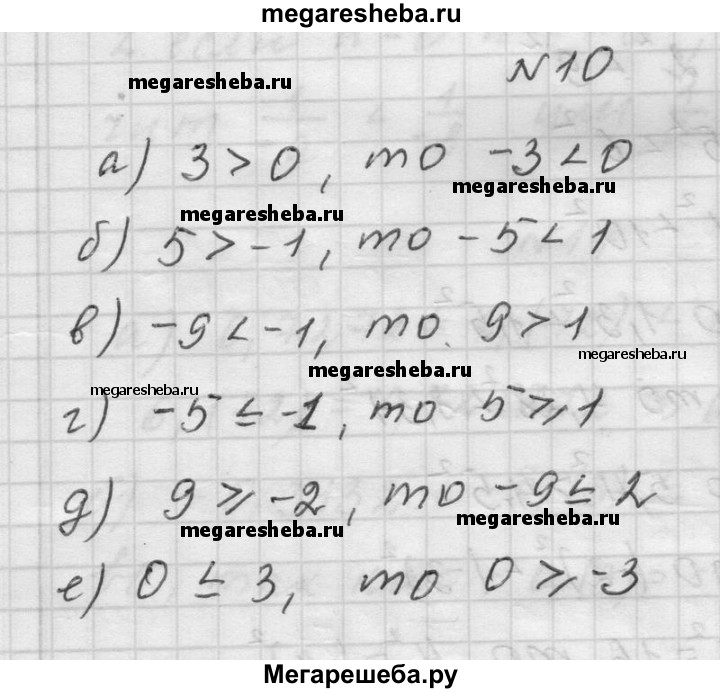 megaresheba.ru
№10
megaresheba.ru
а) 3 > 0, то -3 < 0
megaresheba.ru
megaresheba.ru
б) 5 > -1, то -5 < 1
в) -9 < -1, то 9 > 1
megaresheba.ru
megaresheba.ru
megaresheba.ru
г) -5 ≤ -1, то 5 ≥ 1
д) 9 ≥ -2, то -9 ≤ 2
megaresheba.ru
megaresheba.ru
е) 0 ≤ 3, то 0 ≥ -3
Мегарешеба.ру